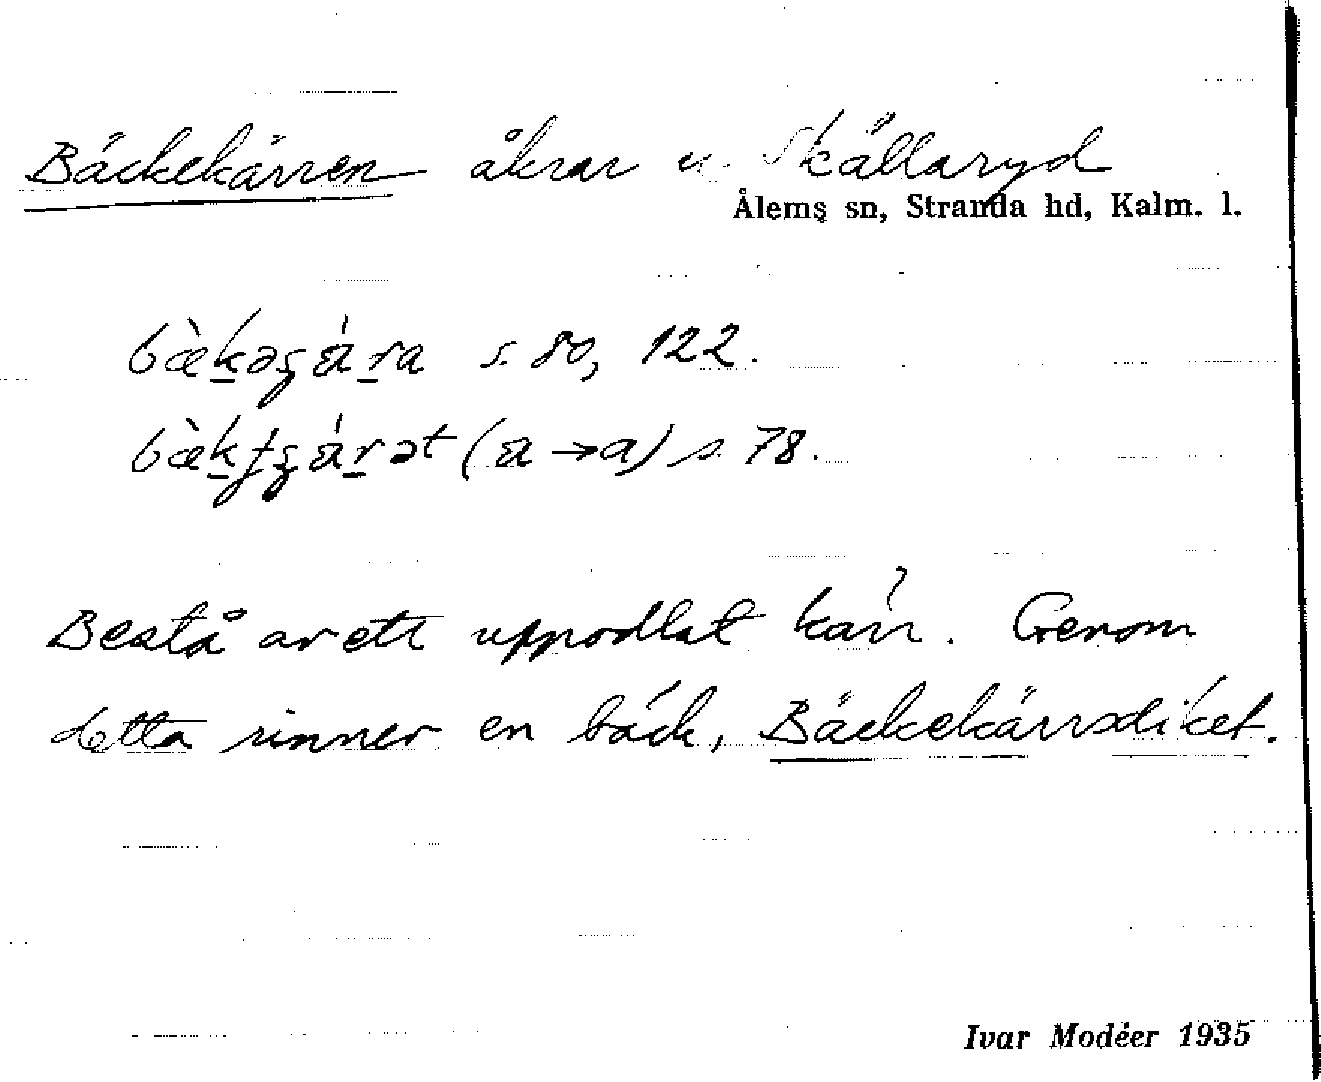 Bäckekärren åkrar u. Skällaryd
Ålems sn, Stranda hd, Kalm. l.
s. 80, 122.
s. 78.
Bestå av ett uppodlat kärr. Genom
detta rinner en bäck, Bäckekärrsdiket.
Ivar Modéer 1935